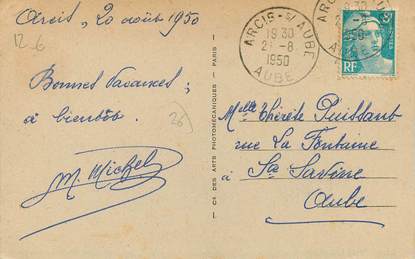 Arcis, 20 août 1950
12-6
Bonnes Vacances ;
à bientôt.
26
M. Michel
Cie DES ARTS PHOTOMÉCANIQUES - PARIS
ARCIS-S/AUBE
19 30
21-8
1950
AUBE
RF
Melle Thérèse Puissant
rue La Fontaine
à Ste Savine
Aube